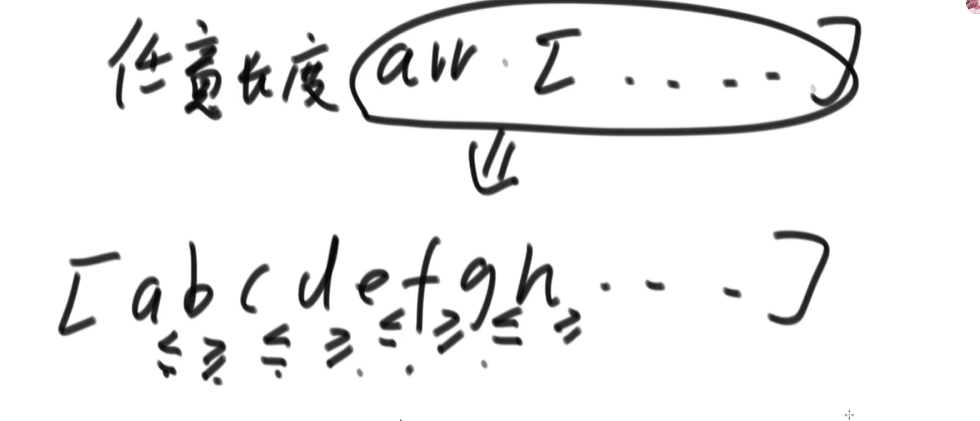 任意长度 arr [ . . . . ]
[ a b c d e f g h . . . ]
≤ ≥ ≤ ≥ ≤ ≥ ≤ ≥